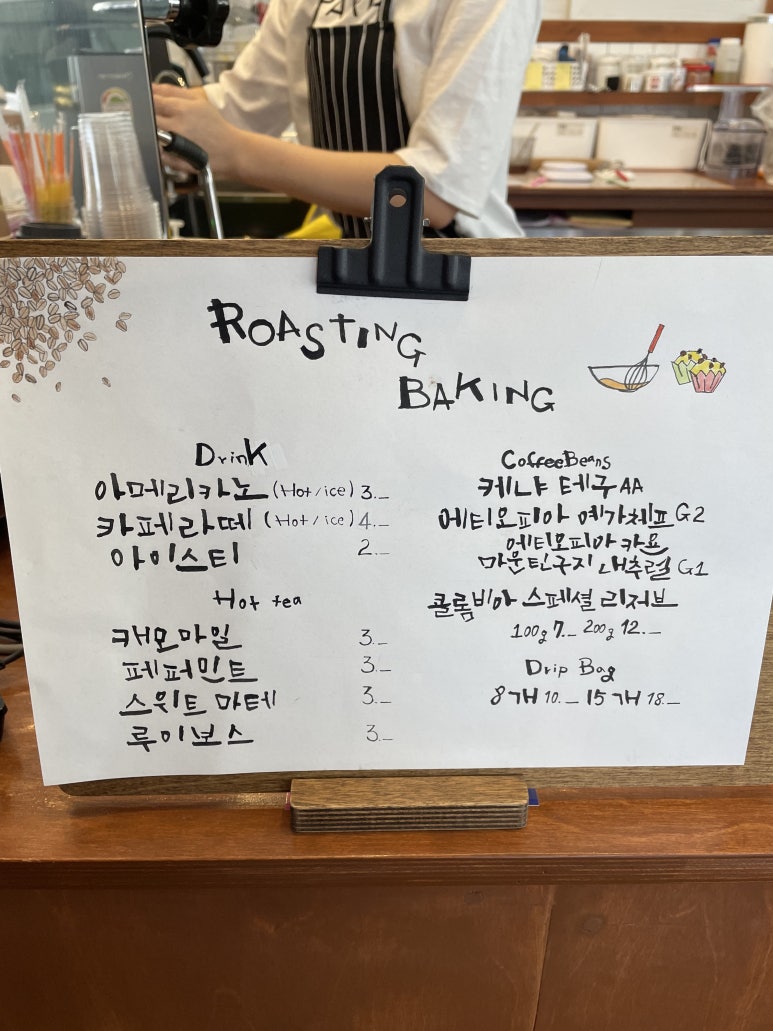 ROASTING
BAKING
Drink
아메리카노 (Hot/ice) 3._
카페라떼 (Hot/ice) 4._
아이스티 2._
Hot tea
캐모마일 3._
페퍼민트 3._
스위트 마테 3._
루이보스 3._
CoffeeBeans
케냐 테구 AA
에티오피아 예가체프 G2
에티오피아 카욘
마운틴 구지 내추럴 G1
콜롬비아 스페셜 리저브
100g 7._ 200g 12._
Drip Bag
8개 10._ 15개 18._